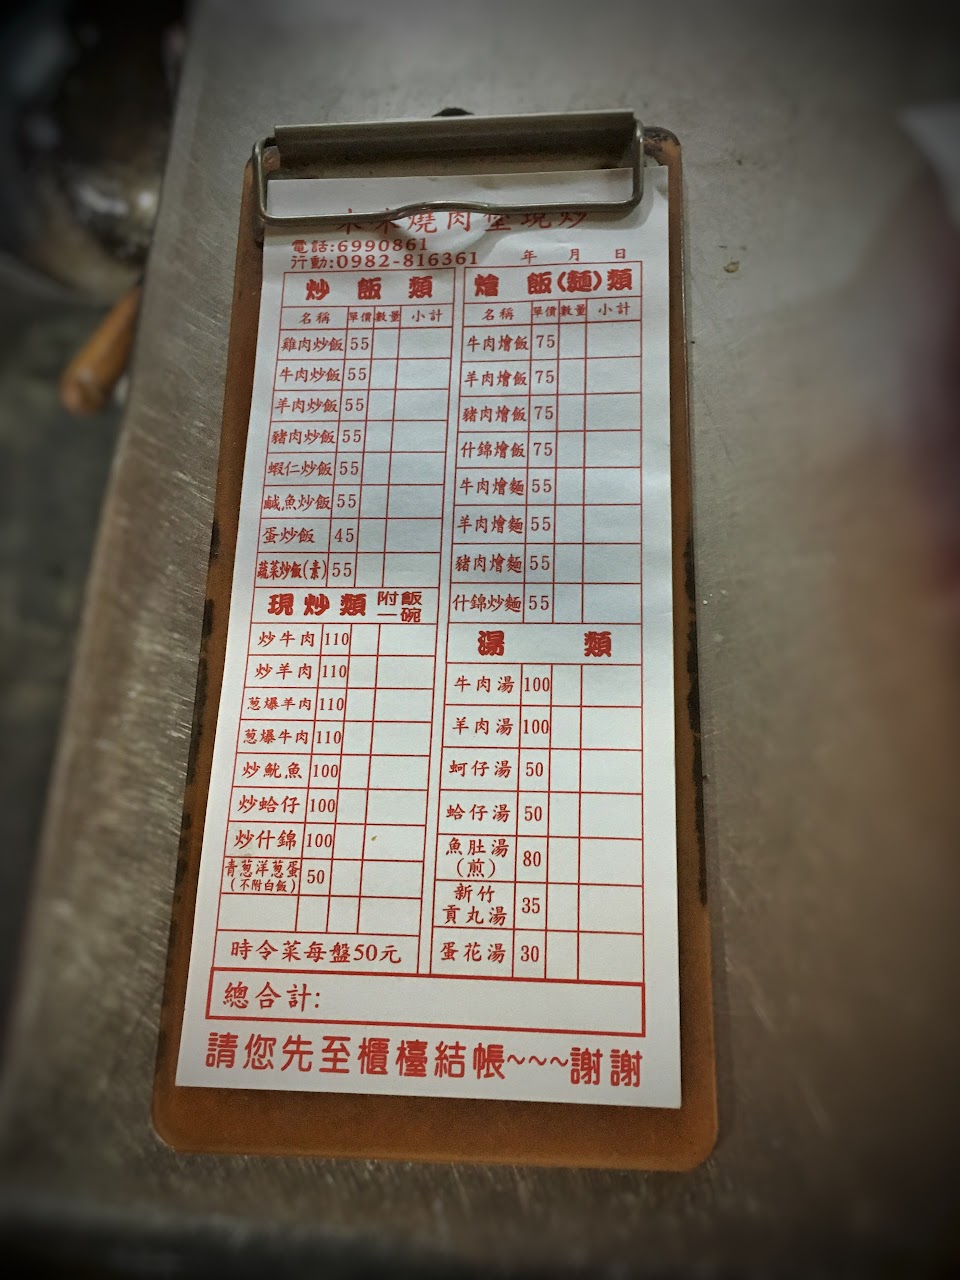 燒肉
現炒
電話:6990861
行動:0982-816361
年 月 日
炒飯類
名稱 單價 數量 小計
雞肉炒飯 55
牛肉炒飯 55
羊肉炒飯 55
豬肉炒飯 55
蝦仁炒飯 55
鹹魚炒飯 55
蛋炒飯 45
蔬菜炒飯(素) 55
現炒類 附飯一碗
炒牛肉 110
炒羊肉 110
蔥爆羊肉 110
蔥爆牛肉 110
炒魷魚 100
炒蛤仔 100
炒什錦 100
青蔥洋蔥蛋 50
(不附白飯)
時令菜每盤50元
燴飯(麵)類
名稱 單價 數量 小計
牛肉燴飯 75
羊肉燴飯 75
豬肉燴飯 75
什錦燴飯 75
牛肉燴麵 55
羊肉燴麵 55
豬肉燴麵 55
什錦炒麵 55
湯類
牛肉湯 100
羊肉湯 100
蚵仔湯 50
蛤仔湯 50
魚肚湯 80
(煎)
新竹
貢丸湯 35
蛋花湯 30
總合計:
請您先至櫃檯結帳~~~謝謝